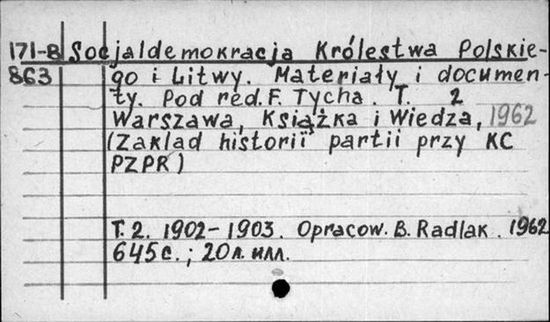 171-B Socjaldemokracja Królestwa Polskie-
863 go i Litwy. Materiały i documen-
ty. Pod red. F. Tycha. T. 2
Warszawa, Książka i Wiedza, 1962
(Zaklad historii partii przy KC
PZPR)
T. 2. 1902-1903. Opracow. B. Radlak. 1962
645 с.; 20 л. илл.